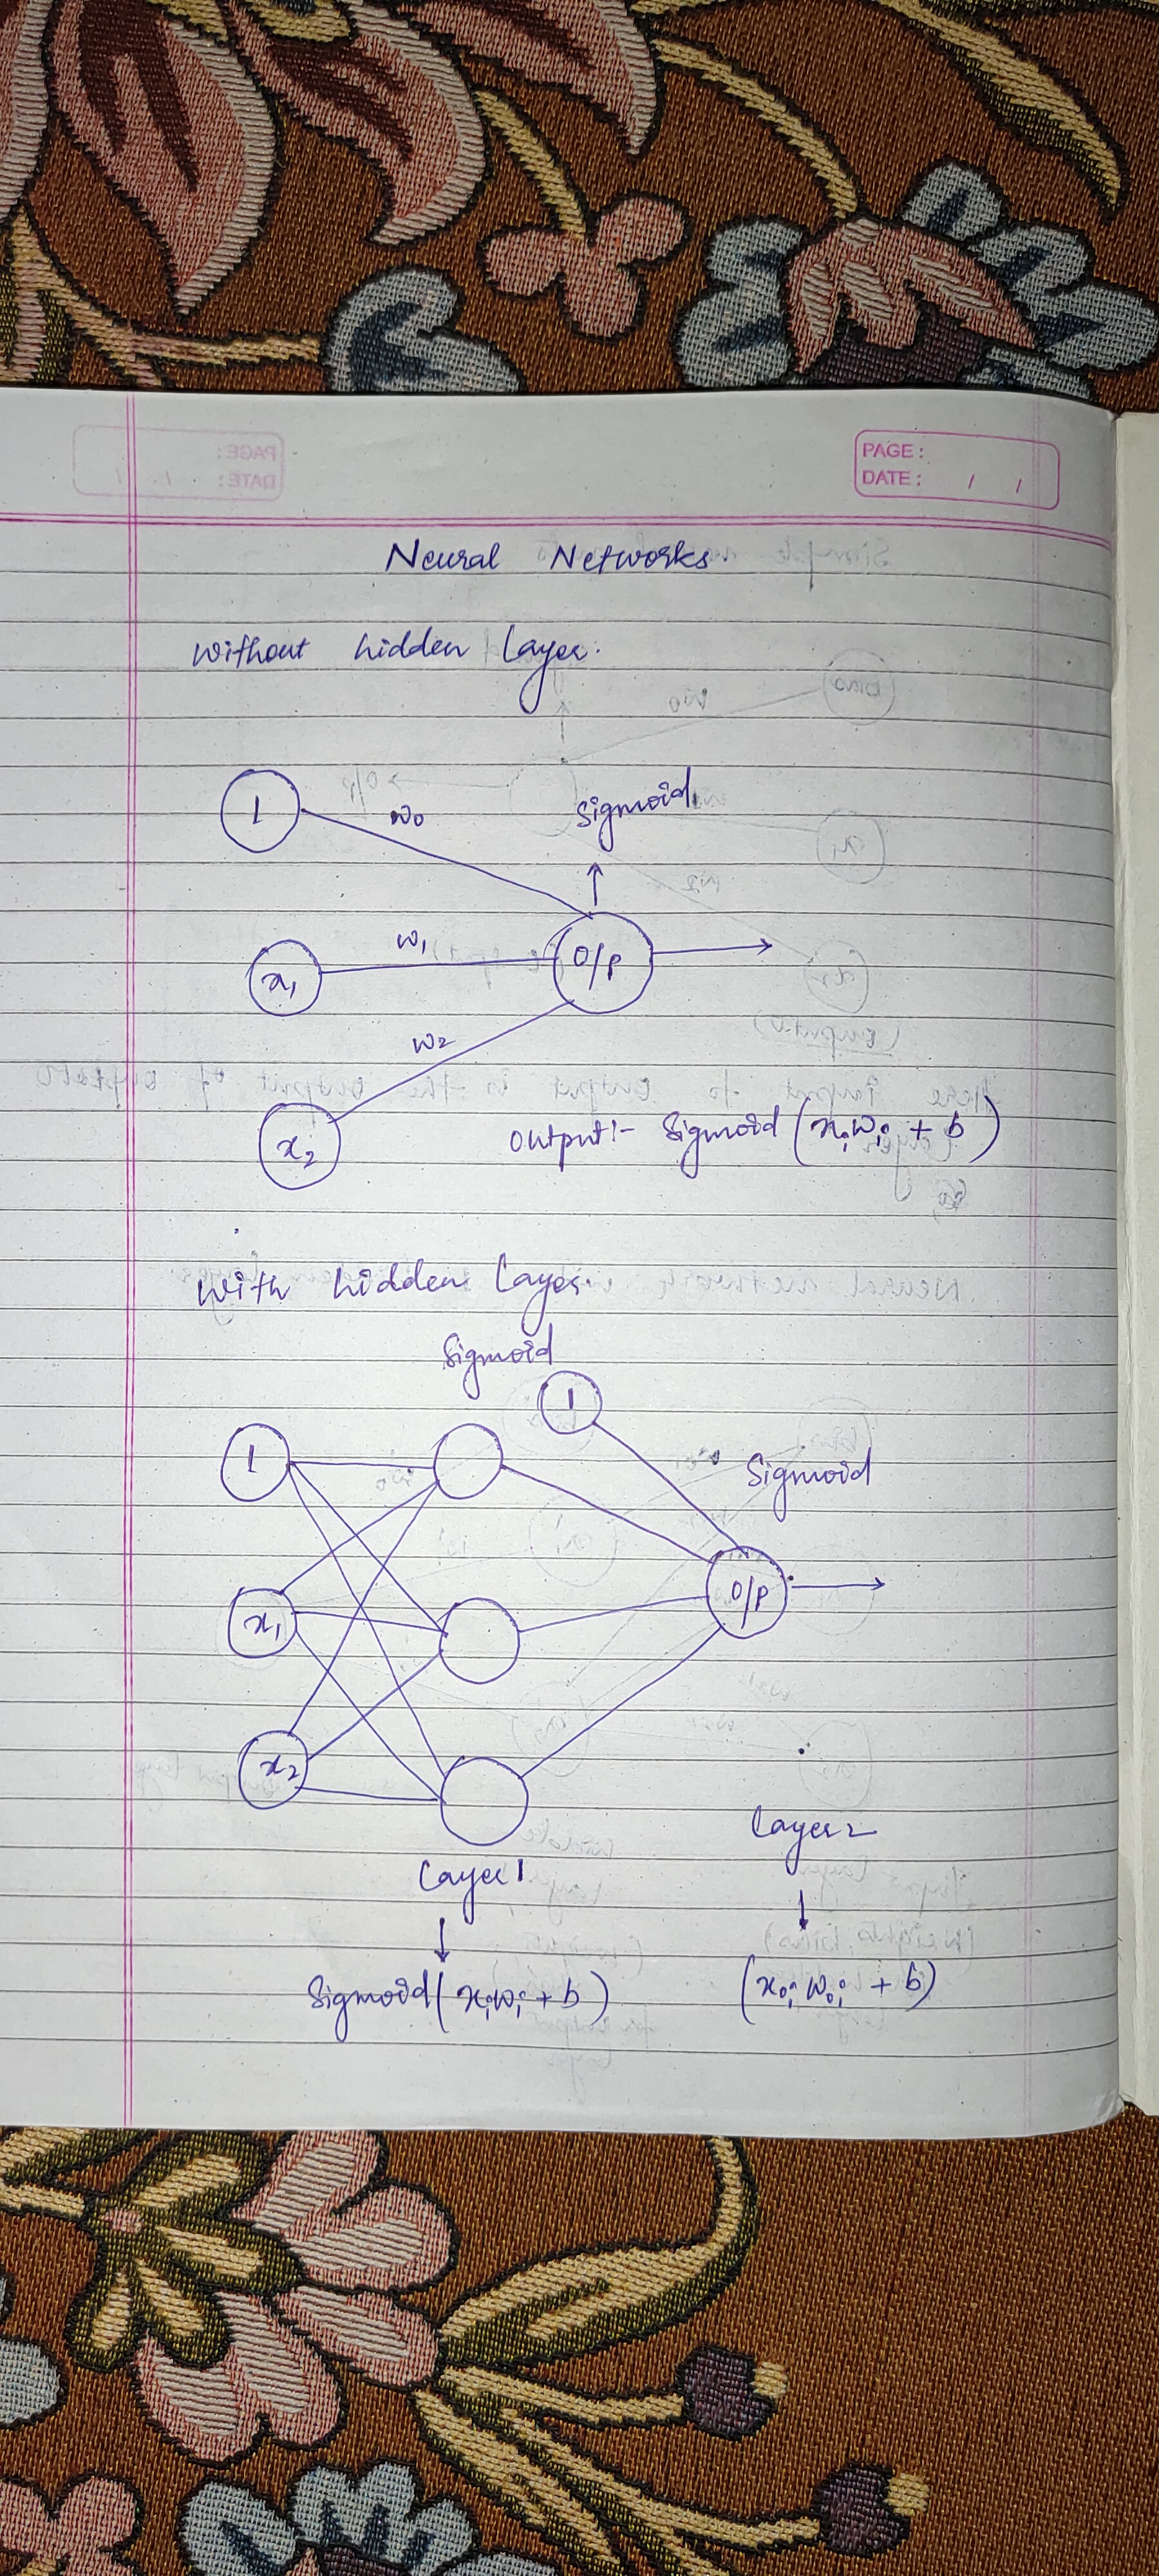 PAGE:
DATE: / /
Neural Networks.
Without hidden Layer.
1
w0
Sigmoid
x1
w1
O/P
w2
x2
Output:- Sigmoid (xiwi + b)
With hidden Layer.
Sigmoid
1
1
w0
Sigmoid
x1
O/P
x2
Layer 2
Layer 1
Sigmoid (xiwi + b)
(x0i w0i + b)